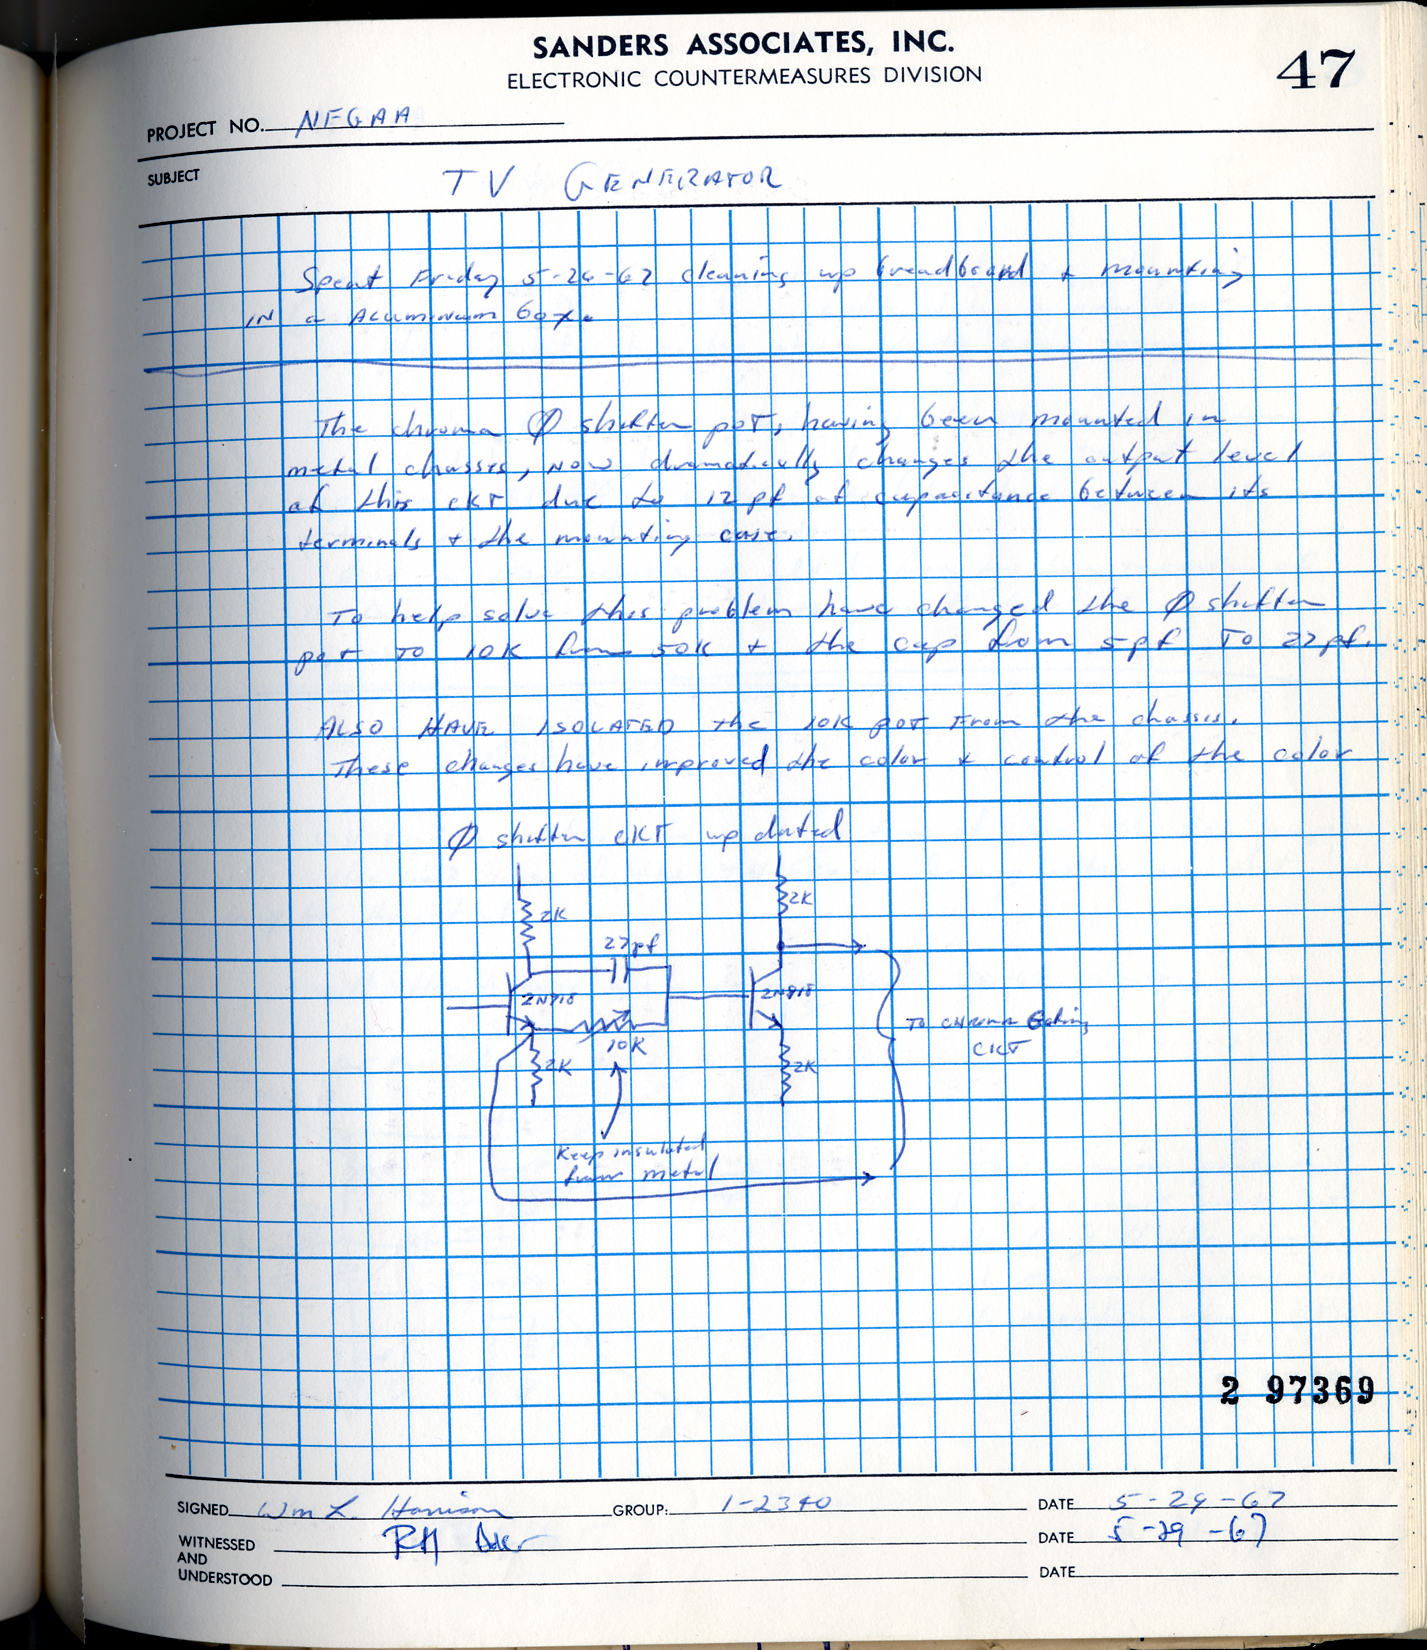 SANDERS ASSOCIATES, INC.
ELECTRONIC COUNTERMEASURES DIVISION
47
PROJECT NO. NEGAA
SUBJECT TV GENERATOR
Spent Friday 5-26-67 cleaning up breadboard + mounting
IN a Aluminum box.
The chroma Ø shifter pot, having been mounted in
metal chassis, NOW dramatically changes the output level
of this CKT due to 12 pf of capacitance between its
terminals + the mounting case.
To help solve this problem have changed the Ø shifter
pot TO 10K from 50K + the cap from 5pf TO 27pf.
ALSO HAVE ISOLATED the 10K pot From the chassis.
These changes have improved the color + control of the color
Ø shifter CKT up dated
2K
2K
27pf
2N918
2N918
10K
2K
2K
To CHROMA Gating
CKT
Keep insulated
from metal
2 97369
SIGNED Wm L. Harrison GROUP: 1-2340 DATE 5-29-67
WITNESSED
AND
UNDERSTOOD
RH Baer DATE 5-29-67
DATE